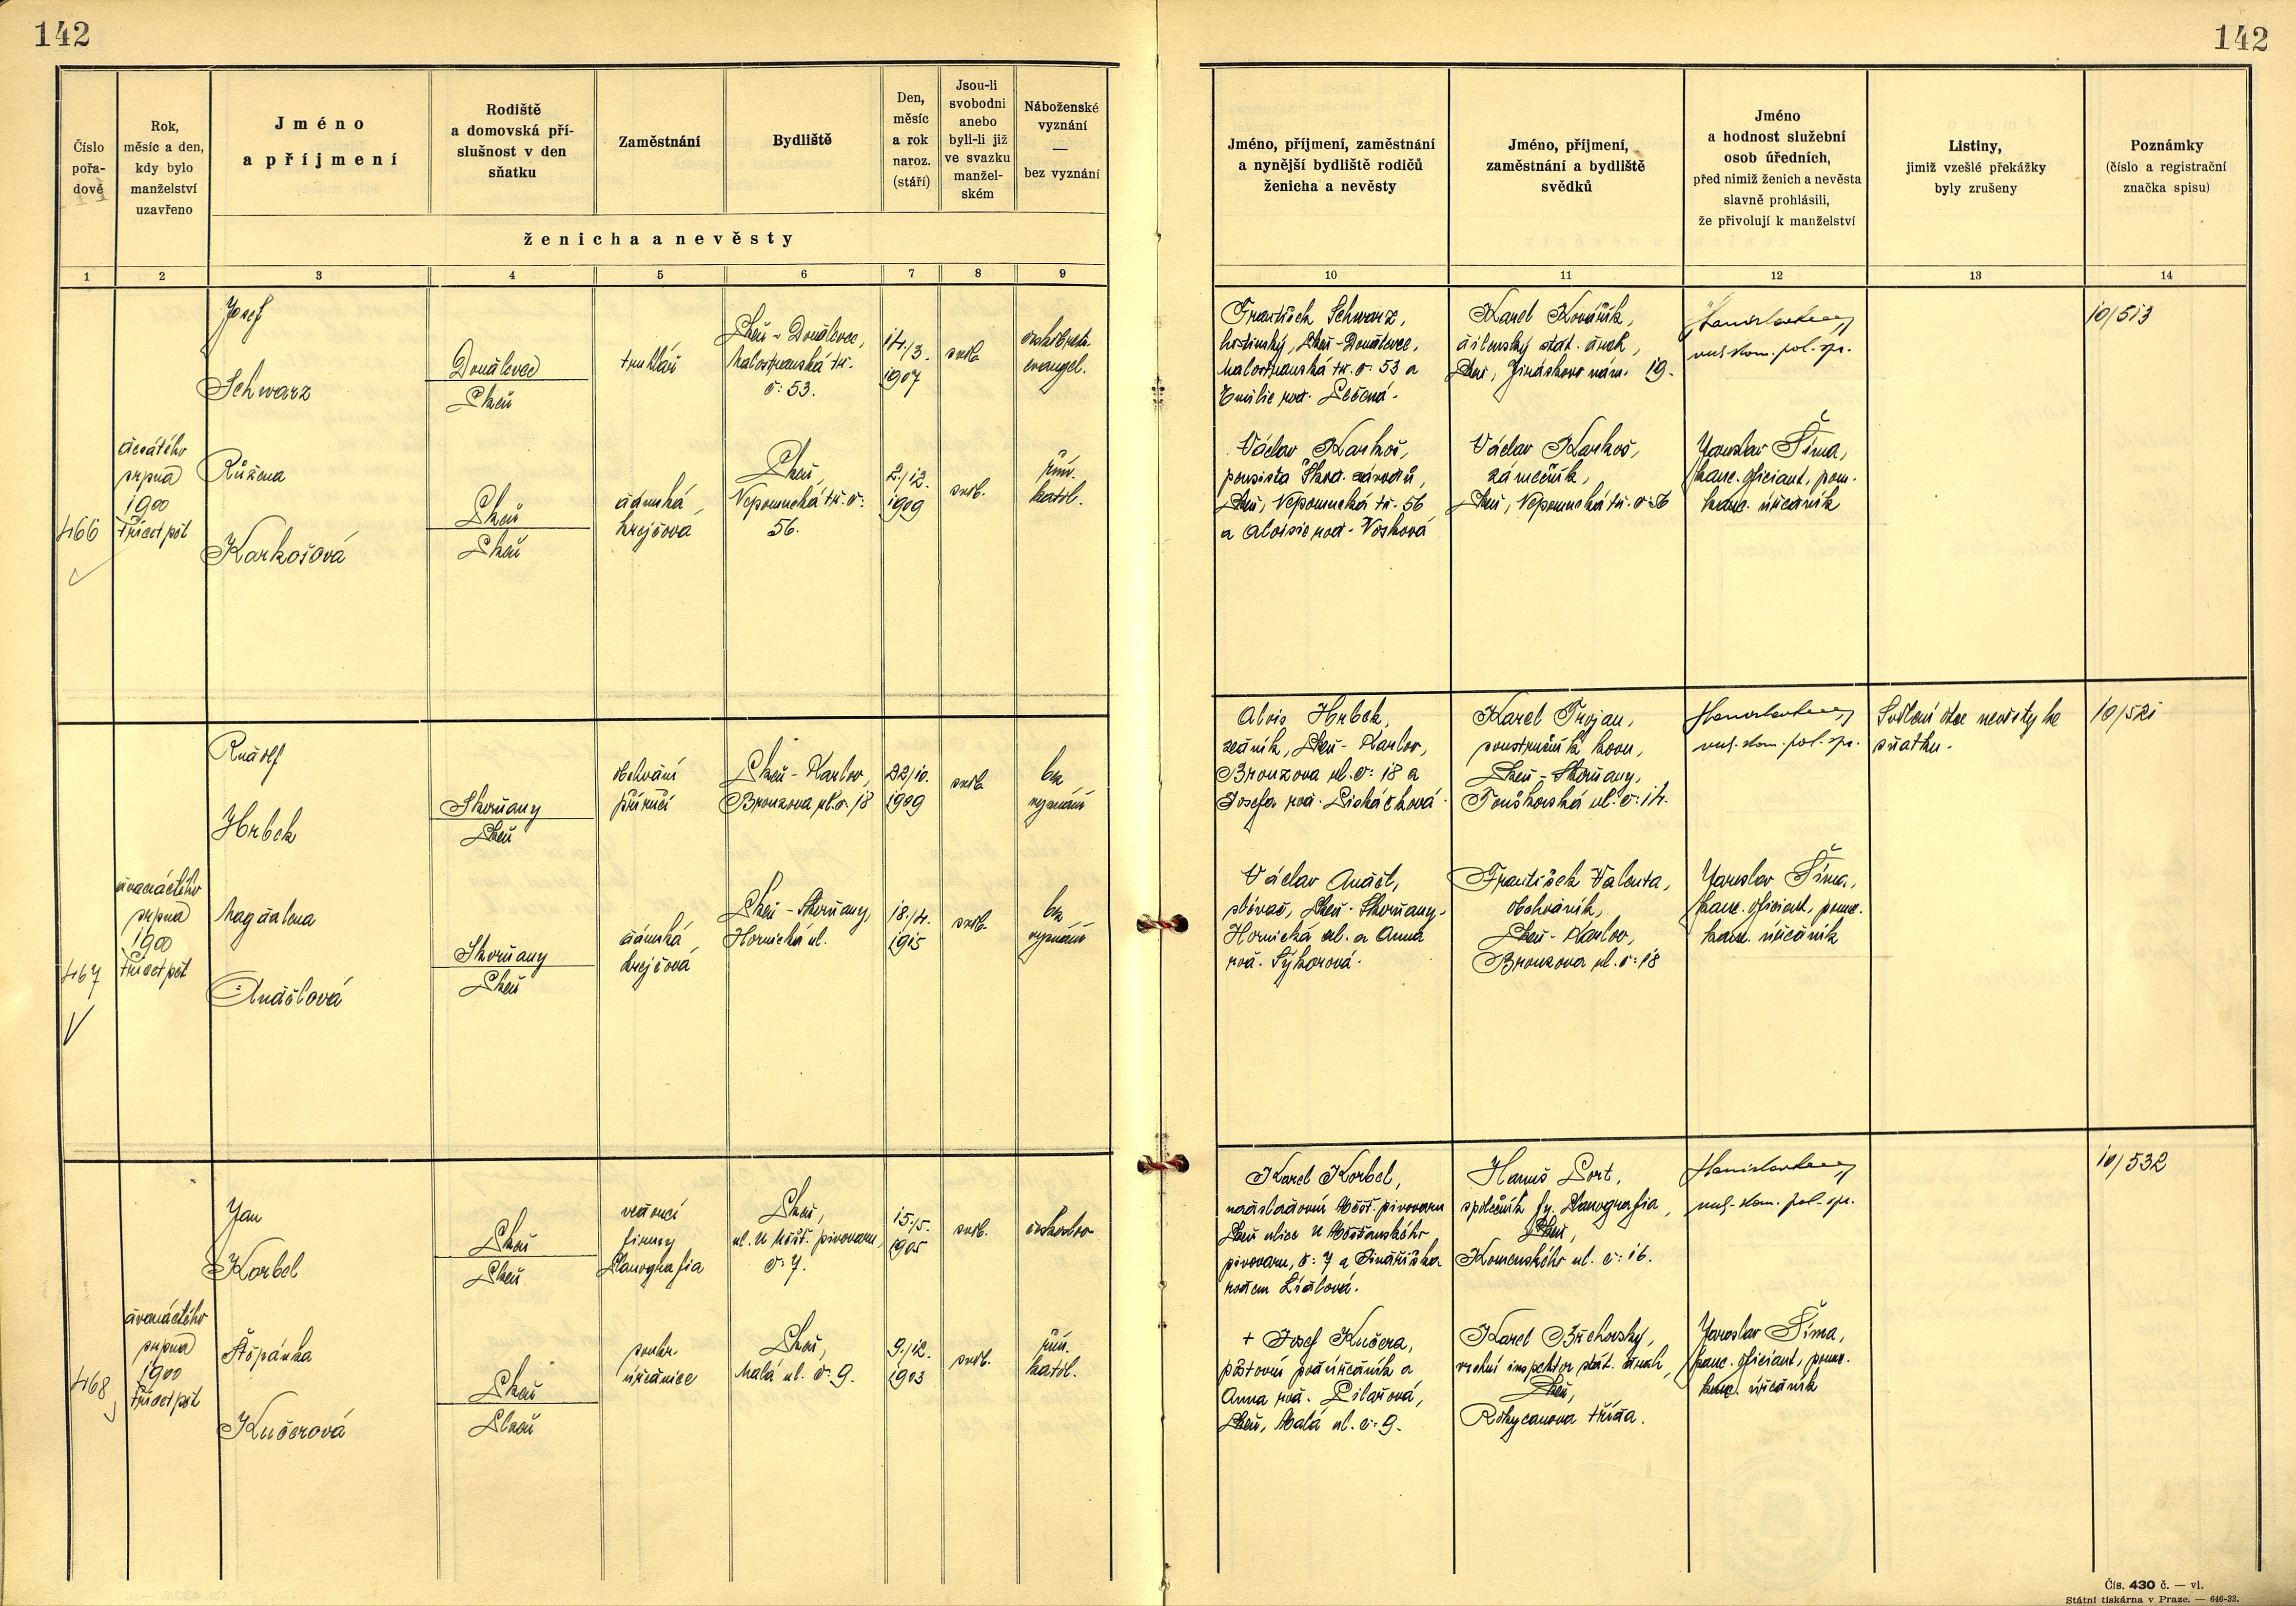 142
142
Číslo
pořa-
dové
Rok,
měsíc a den,
kdy bylo
manželství
uzavřeno
Jméno
a příjmení
Rodiště
a domovská pří-
slušnost v den
sňatku
Zaměstnání
Bydliště
Den,
měsíc
a rok
naroz.
(stáří)
Jsou-li
svobodni
anebo
byli-li již
ve svazku
manžel-
ském
Náboženské
vyznání
—
bez vyznání
ženicha a nevěsty
Jméno, příjmení, zaměstnání
a nynější bydliště rodičů
ženicha a nevěsty
Jméno, příjmení,
zaměstnání a bydliště
svědků
Jméno
a hodnost služební
osob úředních,
před nimiž ženich a nevěsta
slavně prohlásili,
že přivolují k manželství
Listiny,
jimiž vzešlé překážky
byly zrušeny
Poznámky
(číslo a registrační
značka spisu)
1 2 3 4 5 6 7 8 9
10 11 12 13 14
466
desátého
srpna
1900
třicet pět
Josef
Schwarz
Doudlevce
Plzeň
truhlář
Plzeň - Doudlevce,
Malostranská tř.
č: 53.
14./3.
1907
svob.
českobratr.
evangel.
Růžena
Karkošová
Plzeň
Plzeň
dámská
krejčová
Plzeň,
Nepomucká tř. č:
56.
2./12.
1909
svob.
řím.
katol.
František Schwarz,
hostinský, Plzeň - Doudlevce,
Malostranská tř. č: 53 a
Emilie roz.
Václav Karkoš,
pensista Škod. závodů,
Plzeň, Nepomucká tř. 56
a Aloisie roz. Vosková
Karel Kovářík,
dílenský stát. drah,
Plzeň, Jiráskovo nám. 19.
Václav Karkoš,
zámečník,
Plzeň, Nepomucká tř. č: 56
pol. spr.
Jaroslav Šíma,
kanc. oficiant, pom.
kanc. úředník
10/513
467
dvanáctého
srpna
1900
třicet pět
Rudolf
Hrbek
Skvrňany
Plzeň
obchodní
příručí
Plzeň - Karlov,
Bronzova ul. č: 18
22/10.
1909
svob.
bez
vyznání
Magdalena
Andělová
Skvrňany
Plzeň
dámská
krejčová
Plzeň - Skvrňany,
Hornická ul.
18./4.
1915
svob.
bez
vyznání
Alois Hrbek,
zedník, Plzeň - Karlov,
Bronzova ul. č: 18 a
Josefa roz.
Václav Anděl,
slévač, Plzeň - Skvrňany,
Hornická ul. a Anna
roz. Sýkorová.
Karel Trojan,
soustružník kovu,
Plzeň - Skvrňany,
ul. č: 14.
František Valenta,
obchodník,
Plzeň - Karlov,
Bronzova ul. č: 18
pol. spr.
Jaroslav Šíma,
kanc. oficiant, pomc.
kanc. úředník
Svolení otce nevěsty ke
sňatku.
10/521
468
dvanáctého
srpna
1900
třicet pět
Jan
Korbel
Plzeň
Plzeň
vedoucí
firmy
Planografia
Plzeň,
ul. U Měšť. pivovaru,
č: 7.
15./5.
1905
svob.
českoslov
Štěpánka
Kučerová
Plzeň
Plzeň
soukr.
úřednice
Plzeň,
Malá ul. č: 9.
9./12.
1903
svob.
řím.
katol.
Karel Korbel,
nádsladovní Měšť. pivovaru
Plzeň ulice U Měšťanského
pivovaru, č: 7 a Jindřiška
rodem Lídlová.
+ Josef Kučera,
poštovní podúředník a
Anna roz. Pilařová,
Plzeň, Malá ul. č: 9.
Hanuš Port,
společník fy. Planografia,
Plzeň,
Komenského ul. č: 16.
Karel Břehovský,
vrchní inspektor stát. drah,
Plzeň,
Rokycanova třída.
pol. spr.
Jaroslav Šíma,
kanc. oficiant, pomc.
kanc. úředník
10/532
Čís. 430 č. — vl.
Státní tiskárna v Praze. — 646-33.